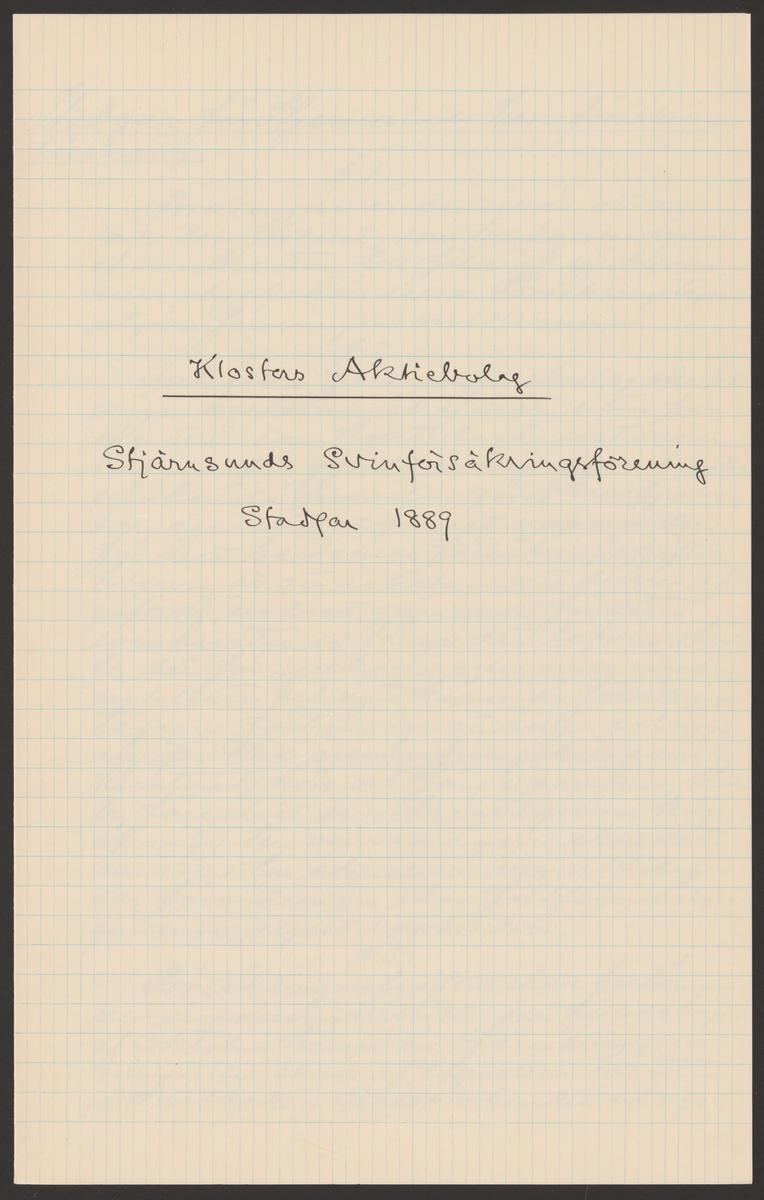 Klosters Aktiebolag
Stjärnsunds Svinförsäkringsförening
Stadgar 1889